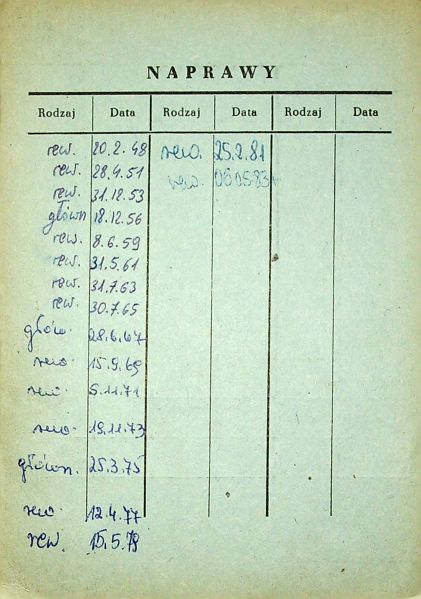 NAPRAWY
Rodzaj Data Rodzaj Data Rodzaj Data
rew. 20.2.48 rew. 25.2.81
rew. 28.4.51 rew. 06.05.83r
rew. 31.12.53
główn 18.12.56
rew. 8.6.59
rew. 31.5.61
rew. 31.7.63
rew. 30.7.65
główn. 28.6.67
rew. 15.9.69
rew. 5.11.71
rew. 19.11.73
główn. 25.3.75
rew. 12.4.77
rew. 15.5.79